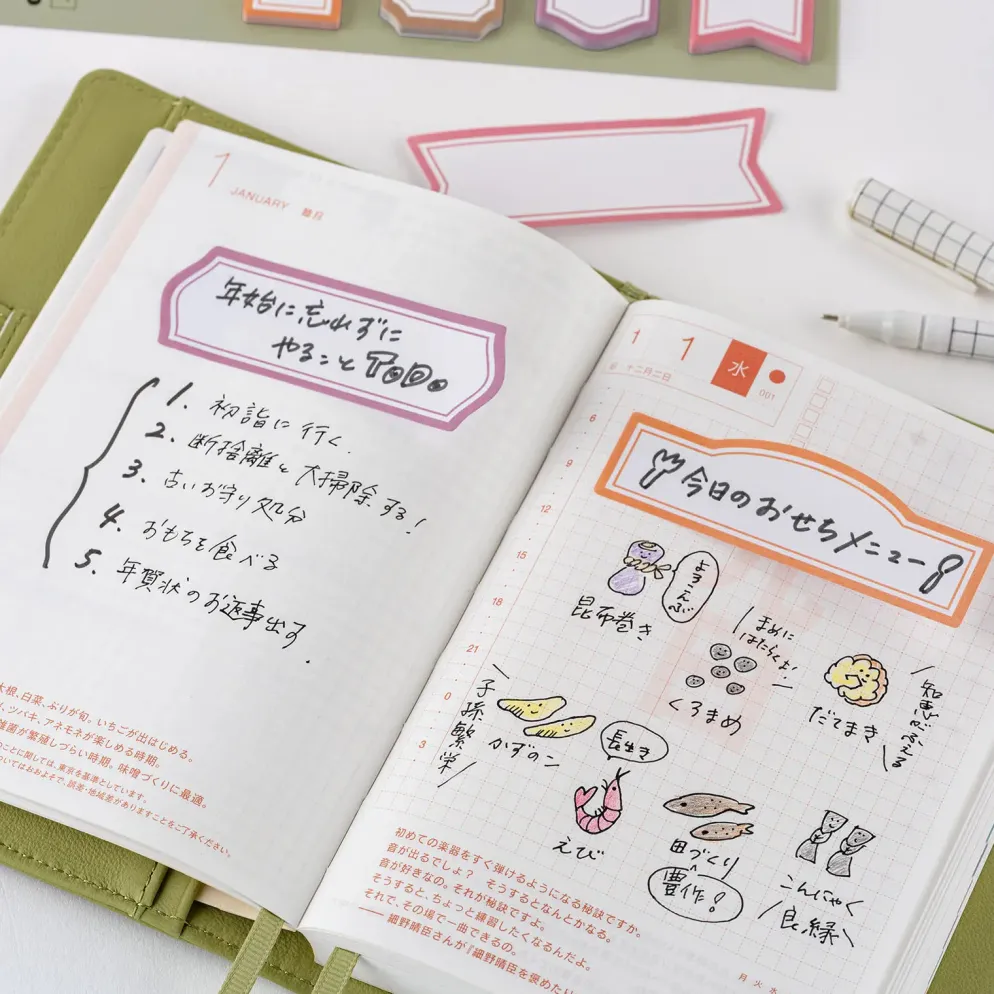 1
JANUARY 睦月
年始に忘れずに
やること TODO。
1. 初詣に行く
2. 断捨離と大掃除する!
3. 古いお守り処分
4. おもちを食べる
5. 年賀状のお返事出す.
大根、白菜、ぶりが旬。いちごが出はじめる。
ツバキ、アネモネが楽しめる時期。
雑菌が繁殖しづらい時期。味噌づくりに最適。
のことに関しては、東京を基準としています。
についてはおおよそで、誤差・地域差がありますことをご了承ください。
1 1 水
十二月二日
001
6
9
12
15
18
21
0
3
今日のおせちメニュー
よろこんぶ
昆布巻き
まめに
はたらくむ!
くろまめ
だてまき
知恵がふえる
子孫繁栄
かずのこ
長生き
えび
田づくり
豊作!
こんにゃく
良縁
初めての楽器をすぐ弾けるようになる秘訣ですか。
音が出るでしょ? そうするとなんとかなる。
音が好きなの。それが秘訣ですよ。
そうすると、ちょっと練習したくなるんだよ。
それで、その場で一曲できるの。
── 細野晴臣さんが『細野晴臣を褒めたい
月 火 水